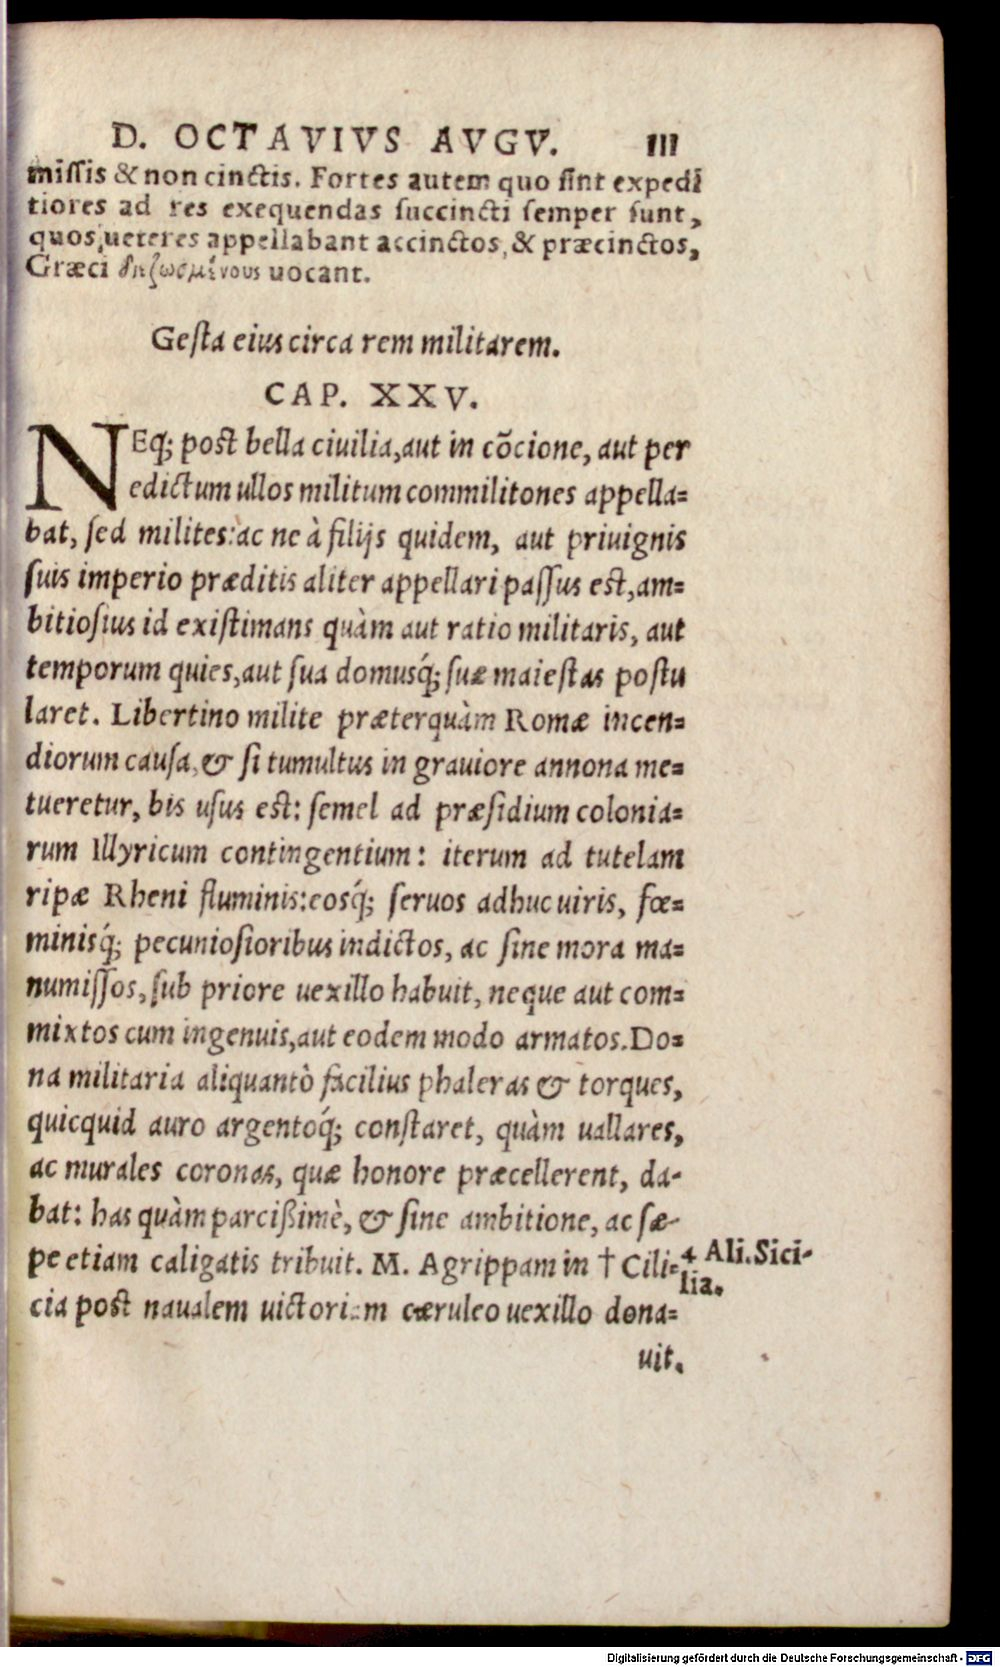 D. OCTAVIVS AVGV. 111
missis & non cinctis. Fortes autem quo sint expedĩ
tiores ad res exequendas succincti semper sunt,
quos ueteres appellabant accinctos, & præcinctos,
Græci uocant.
Gesta eius circa rem militarem.
CAP. XXV.
NEq; post bella ciuilia, aut in cõcione, aut per
edictum ullos militum commilitones appella=
bat, sed milites: ac ne à filijs quidem, aut priuignis
suis imperio præditis aliter appellari passus est, am=
bitiosius id existimans quàm aut ratio militaris, aut
temporum quies, aut sua domusq́; suæ maiestas postu
laret. Libertino milite præterquàm Romæ incen=
diorum causa, & si tumultus in grauiore annona me=
tueretur, bis usus est: semel ad præsidium colonia=
rum Illyricum contingentium: iterum ad tutelam
ripæ Rheni fluminis: eosq́; seruos adhuc uiris, fœ=
minisq́; pecuniosioribus indictos, ac sine mora ma=
numissos, sub priore uexillo habuit, neque aut com=
mixtos cum ingenuis, aut eodem modo armatos. Do=
na militaria aliquantò facilius phaleras & torques,
quicquid auro argentoq́; constaret, quàm uallares,
ac murales coronas, quæ honore præcellerent, da-
bat: has quàm parcißimè, & sine ambitione, ac sæ-
pe etiam caligatis tribuit. M. Agrippam in † Cili=
cia post naualem uictoriam cæruleo uexillo dona=
4 Ali. Sici-
lia.
uit.
Digitalisierung gefördert durch die Deutsche Forschungsgemeinschaft - DFG